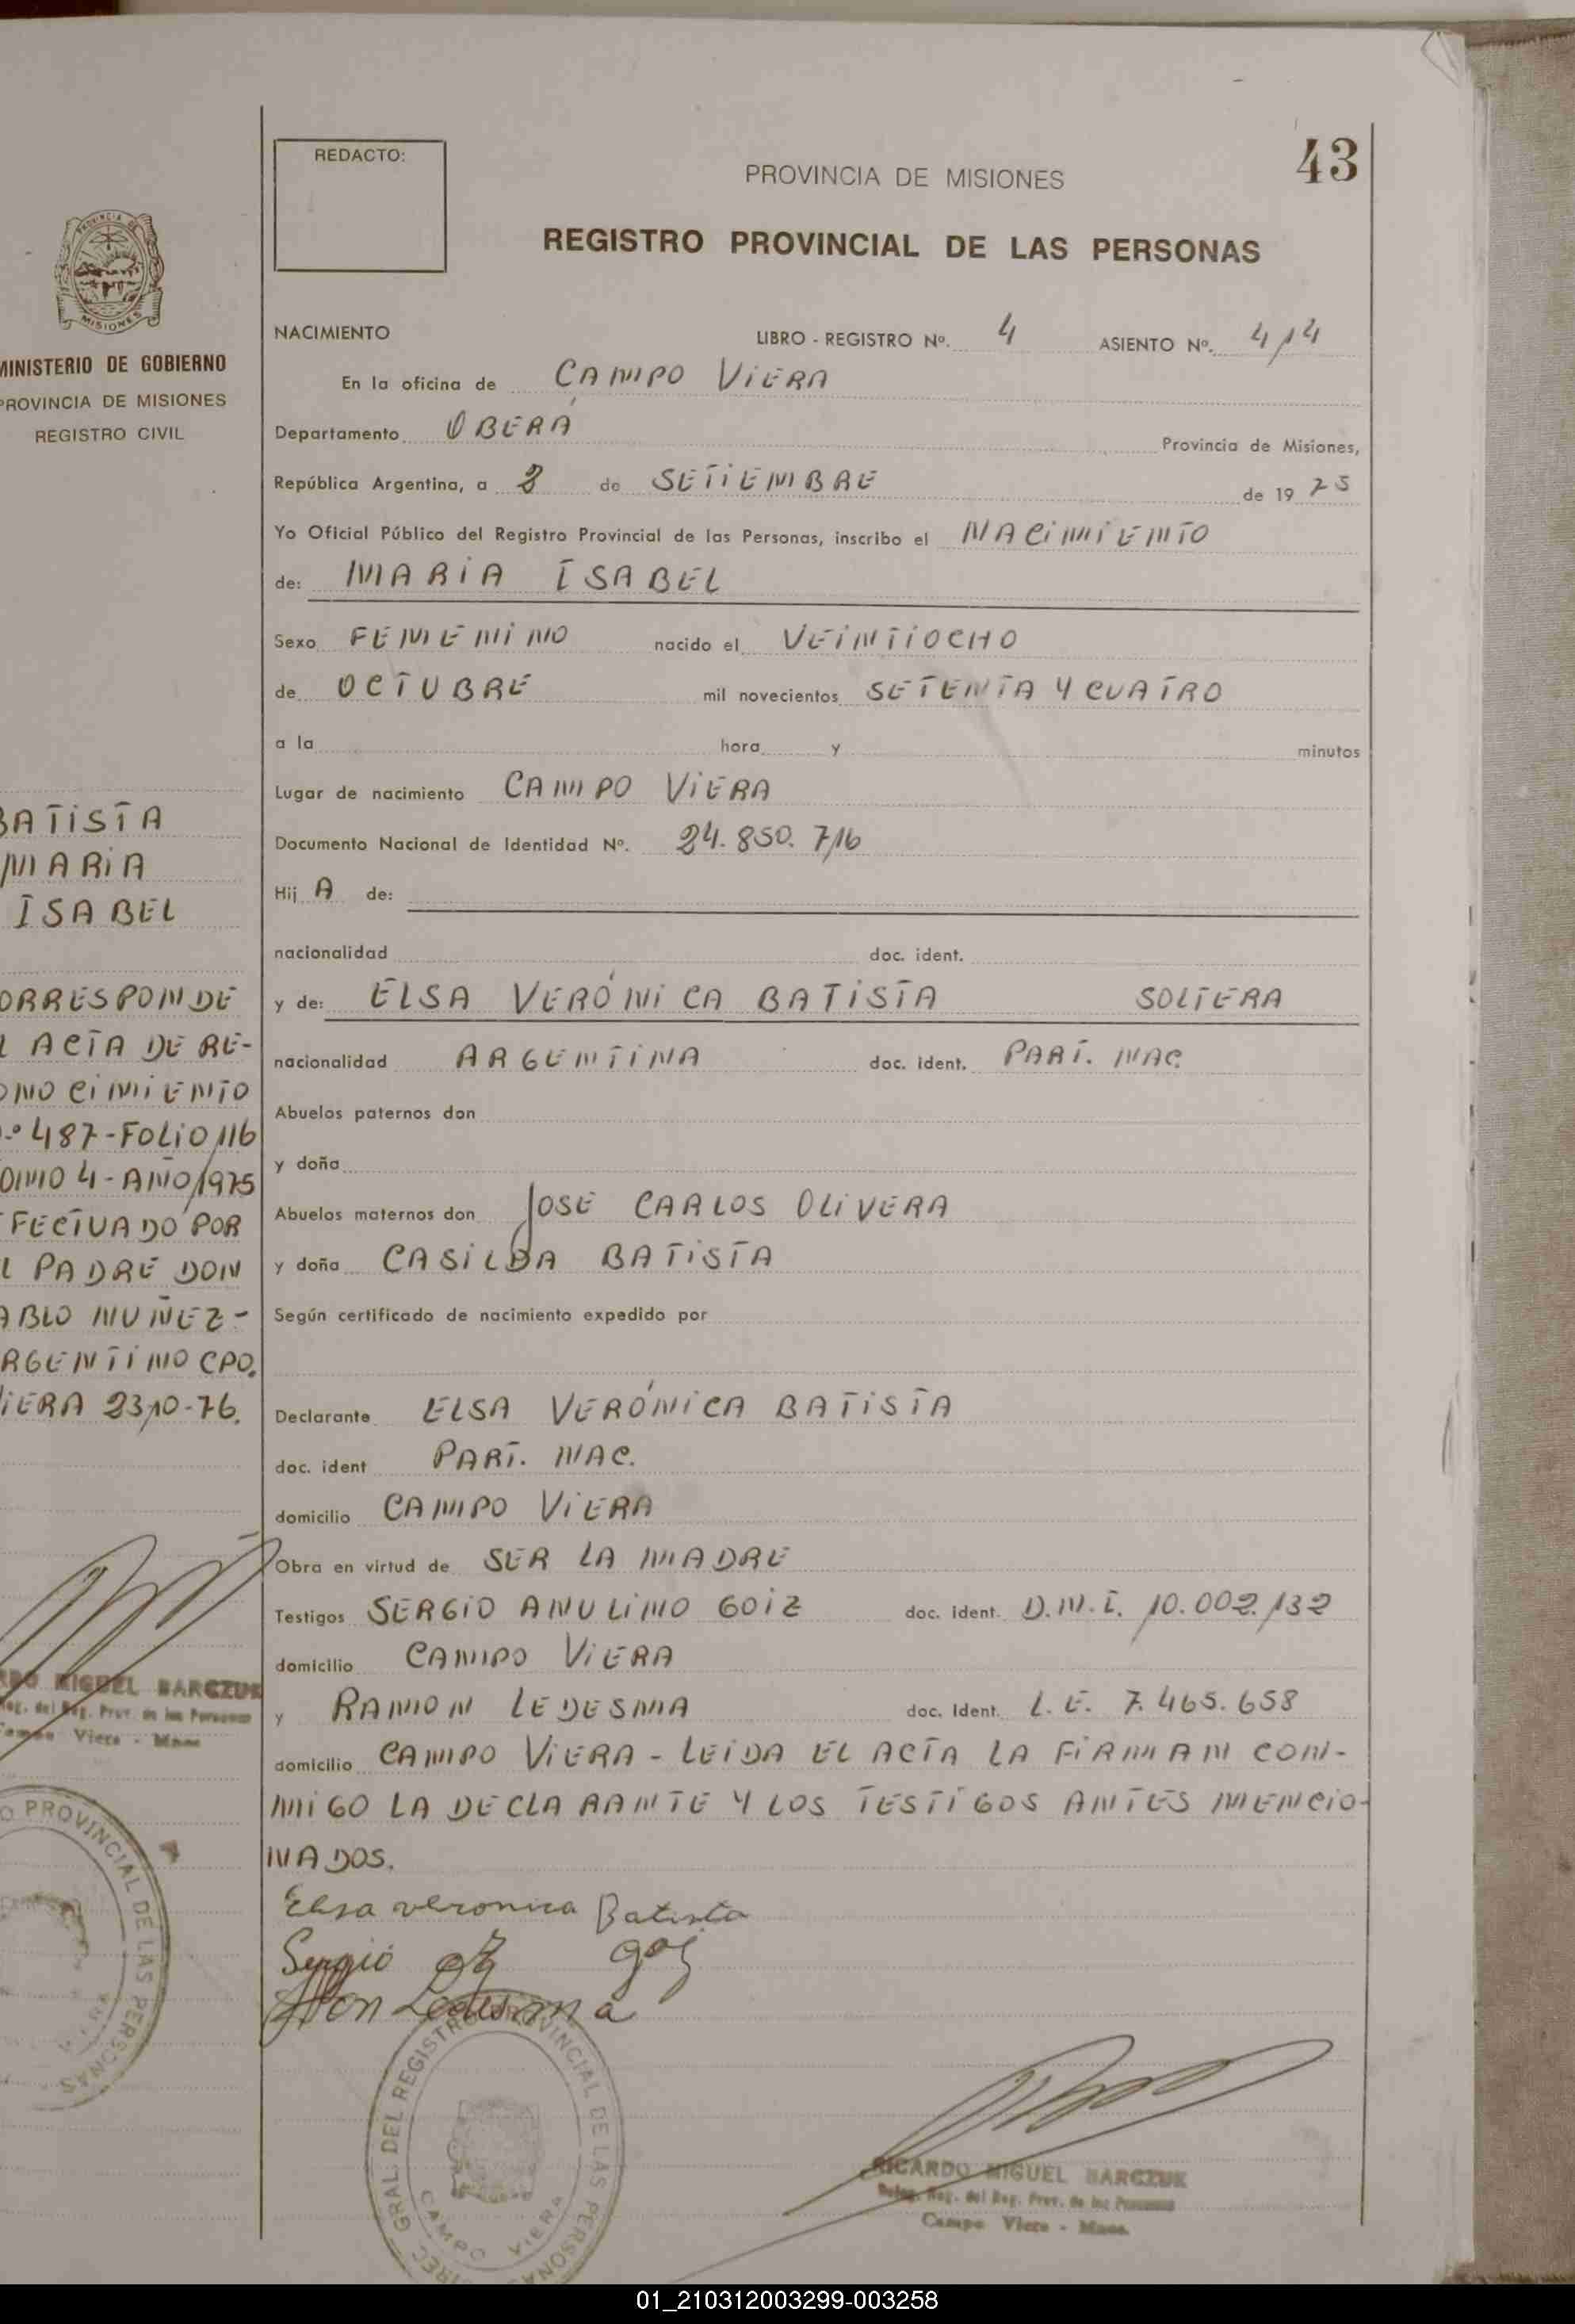 MINISTERIO DE GOBIERNO
PROVINCIA DE MISIONES
REGISTRO CIVIL
BATISTA
MARIA
ISABEL
ORRESPONDE
L ACTA DE RE-
ONOCIMIENTO
N.º 487-FOLIO 116
OMO 4-AÑO 1975
FECTUADO POR
L PADRE DON
ABLO NUÑEZ-
RGENTINO CPO.
IERA 23-10-76.
RDO MIGUEL BARCZUK
Reg. del Reg. Prov. de las Personas
Campo Viera - Mnes
PROVINCIAL DE LAS PERSONAS
REDACTO:
43
PROVINCIA DE MISIONES
REGISTRO PROVINCIAL DE LAS PERSONAS
NACIMIENTO LIBRO - REGISTRO Nº. 4 ASIENTO Nº. 414
En la oficina de CAMPO VIERA
Departamento OBERÁ Provincia de Misiones,
República Argentina, a de SETIEMBRE de 19 75
Yo Oficial Público del Registro Provincial de las Personas, inscribo el NACIMIENTO
de: MARIA ISABEL
Sexo FEMENINO nacido el VEINTIOCHO
de OCTUBRE mil novecientos SETENTA Y CUATRO
a la hora y minutos
Lugar de nacimiento CAMPO VIERA
Documento Nacional de Identidad Nº. 24.850.716
Hij A de:
nacionalidad doc. ident.
y de: ELSA VERÓNICA BATISTA SOLTERA
nacionalidad ARGENTINA doc. ident. PART. NAC.
Abuelos paternos don
y doña
Abuelos maternos don JOSE CARLOS OLIVERA
y doña CASILDA BATISTA
Según certificado de nacimiento expedido por
Declarante ELSA VERÓNICA BATISTA
doc. ident PART. NAC.
domicilio CAMPO VIERA
Obra en virtud de SER LA MADRE
Testigos SERGIO ANULINO GOIZ doc. ident. D.N.I. 10.002.132
domicilio CAMPO VIERA
y RAMON LEDESMA doc. Ident. L.E. 7.465.658
domicilio CAMPO VIERA - LEIDA EL ACTA LA FIRMAN CON-
MIGO LA DECLARANTE Y LOS TESTIGOS ANTES MENCIO-
NADOS.
Elsa veronica Batista
Sergio
Ledesma
GRAL. DEL REGISTRO PROVINCIAL DE LAS PERSONAS
CAMPO VIERA
RICARDO MIGUEL BARCZUK
Deleg. Reg. del Reg. Prov. de las Personas
Campo Viera - Mnes.
01_210312003299-003258